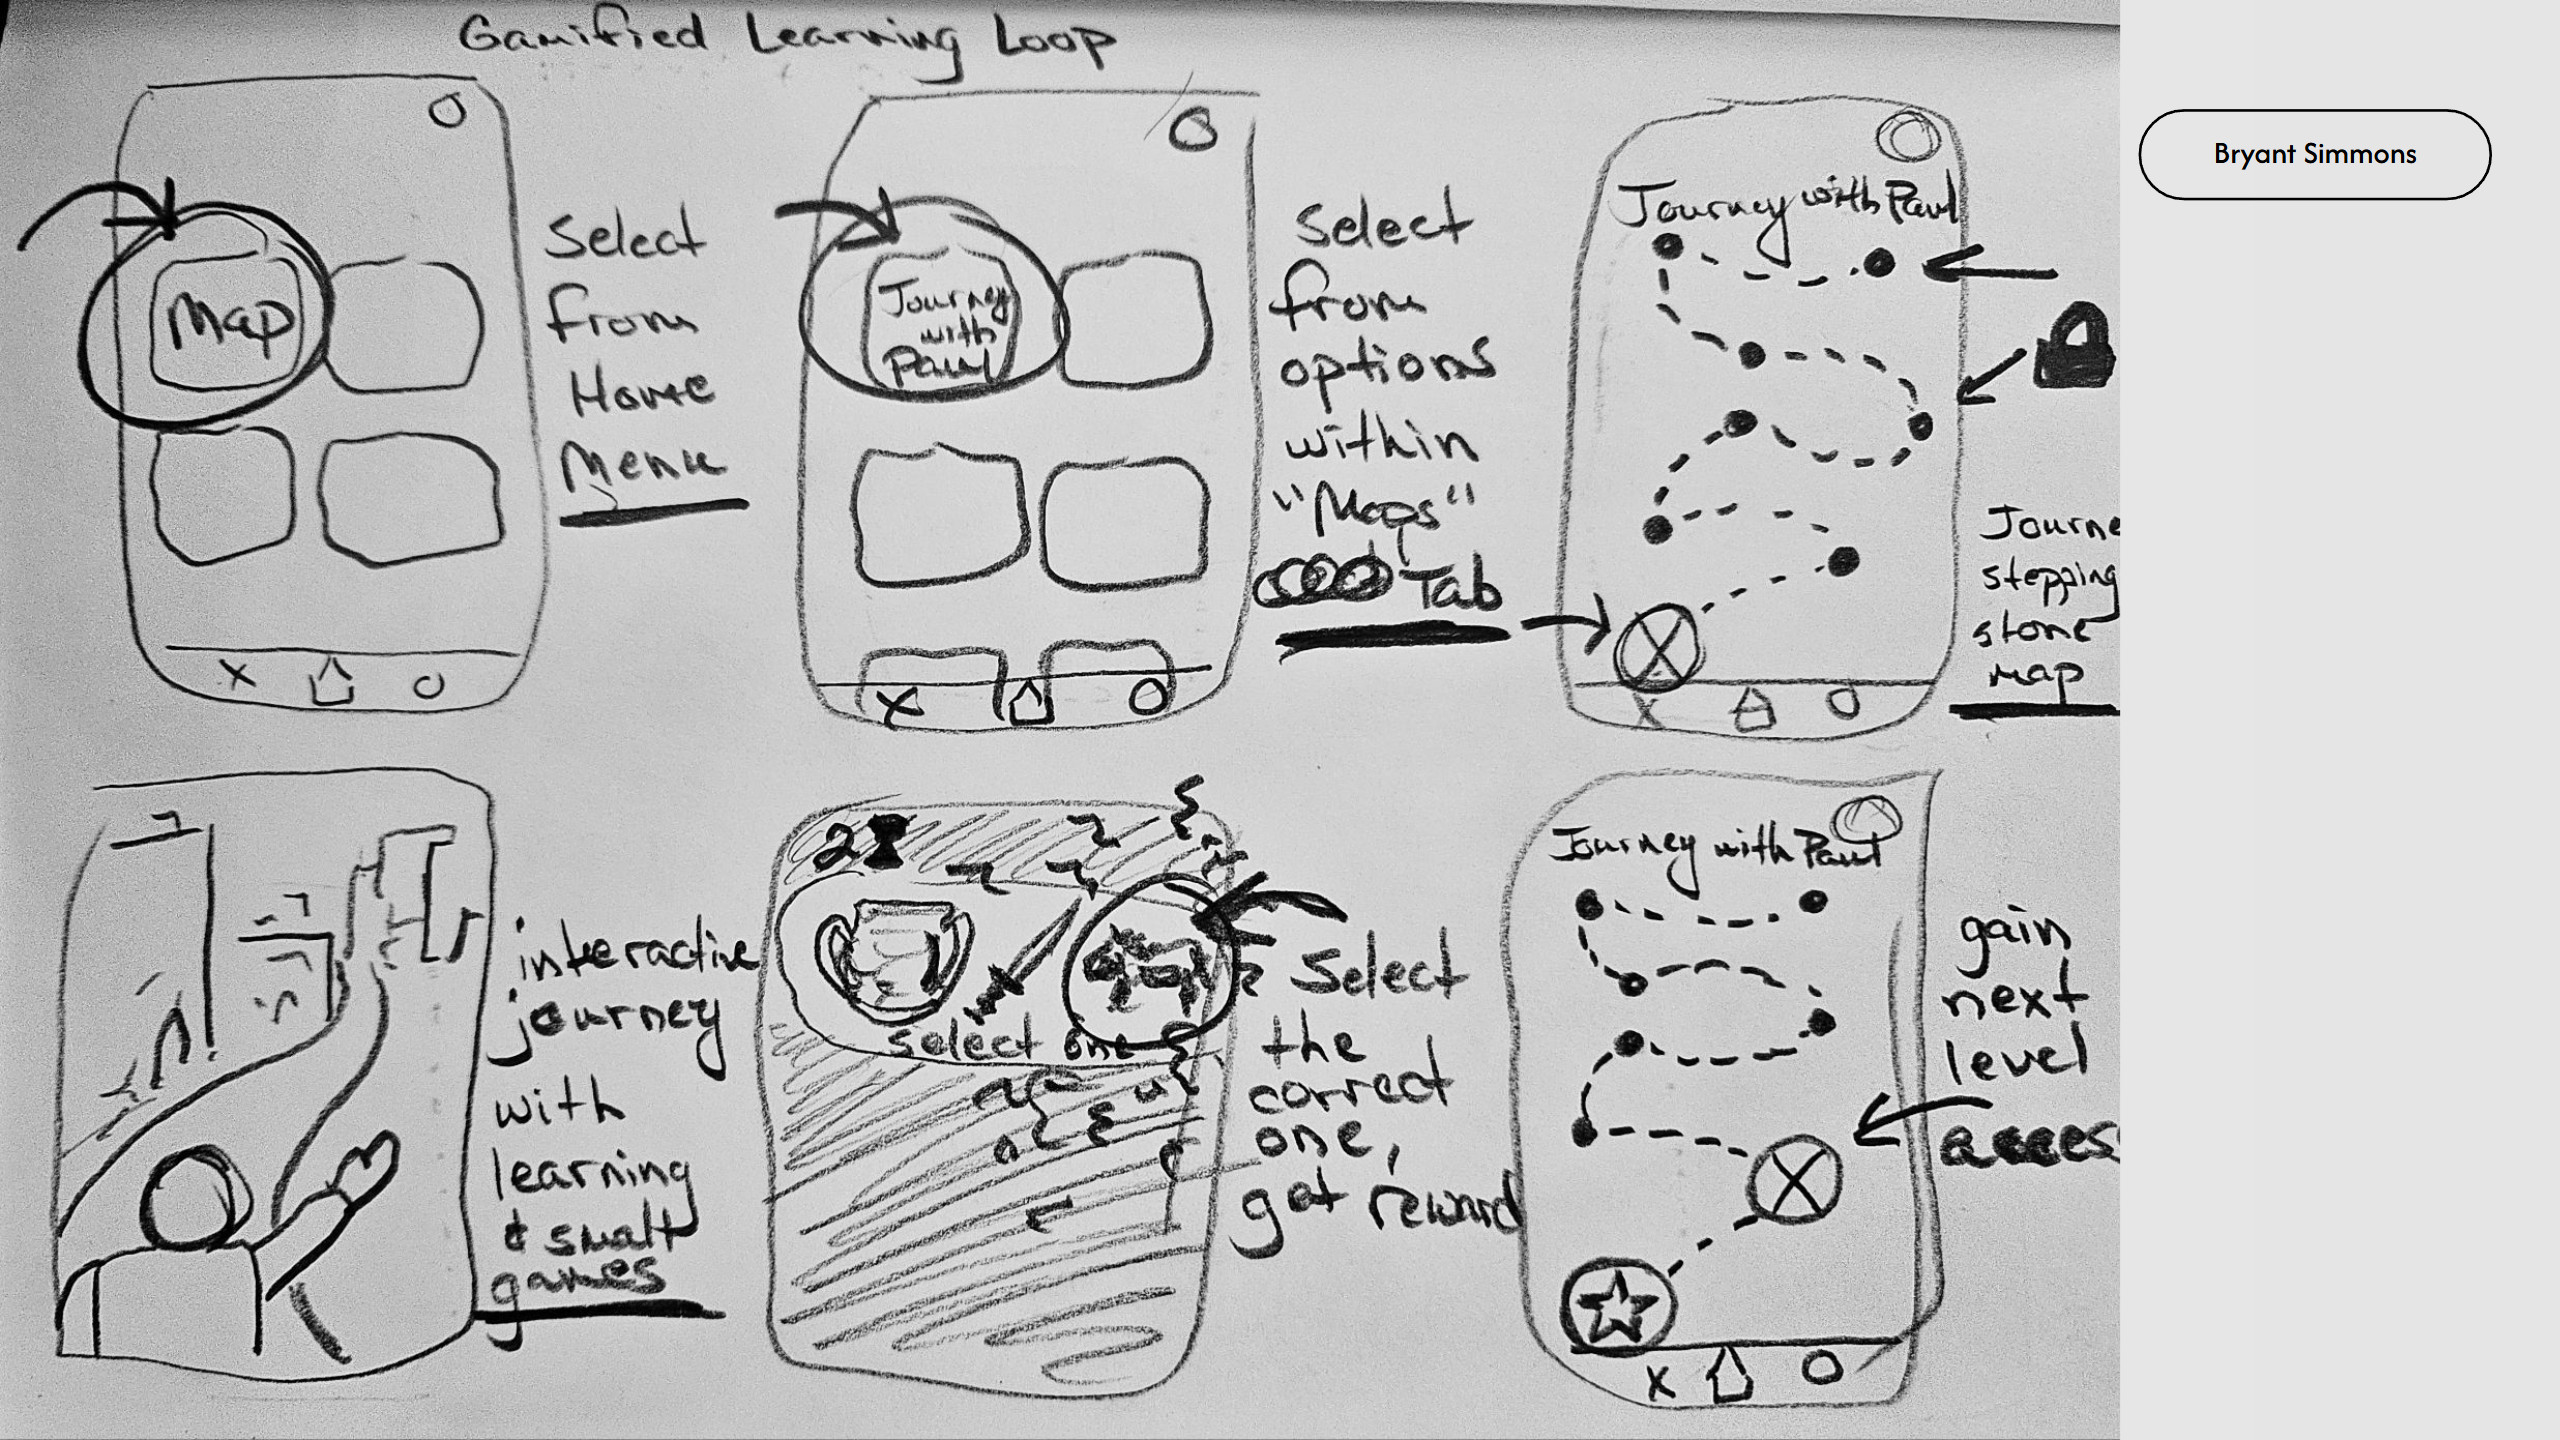 Gamified Learning Loop
Bryant Simmons
Map
Select
from
Home
Menu
Journey
with
Paul
Select
from
options
within
"Maps"
Tab
Journey with Paul
Journe
stepping
stone
map
X
X
X
interactive
journey
with
learning
& small
games
2
select one
Select
the
correct
one,
get reward
Journey with Paul
gain
next
level
acces
X